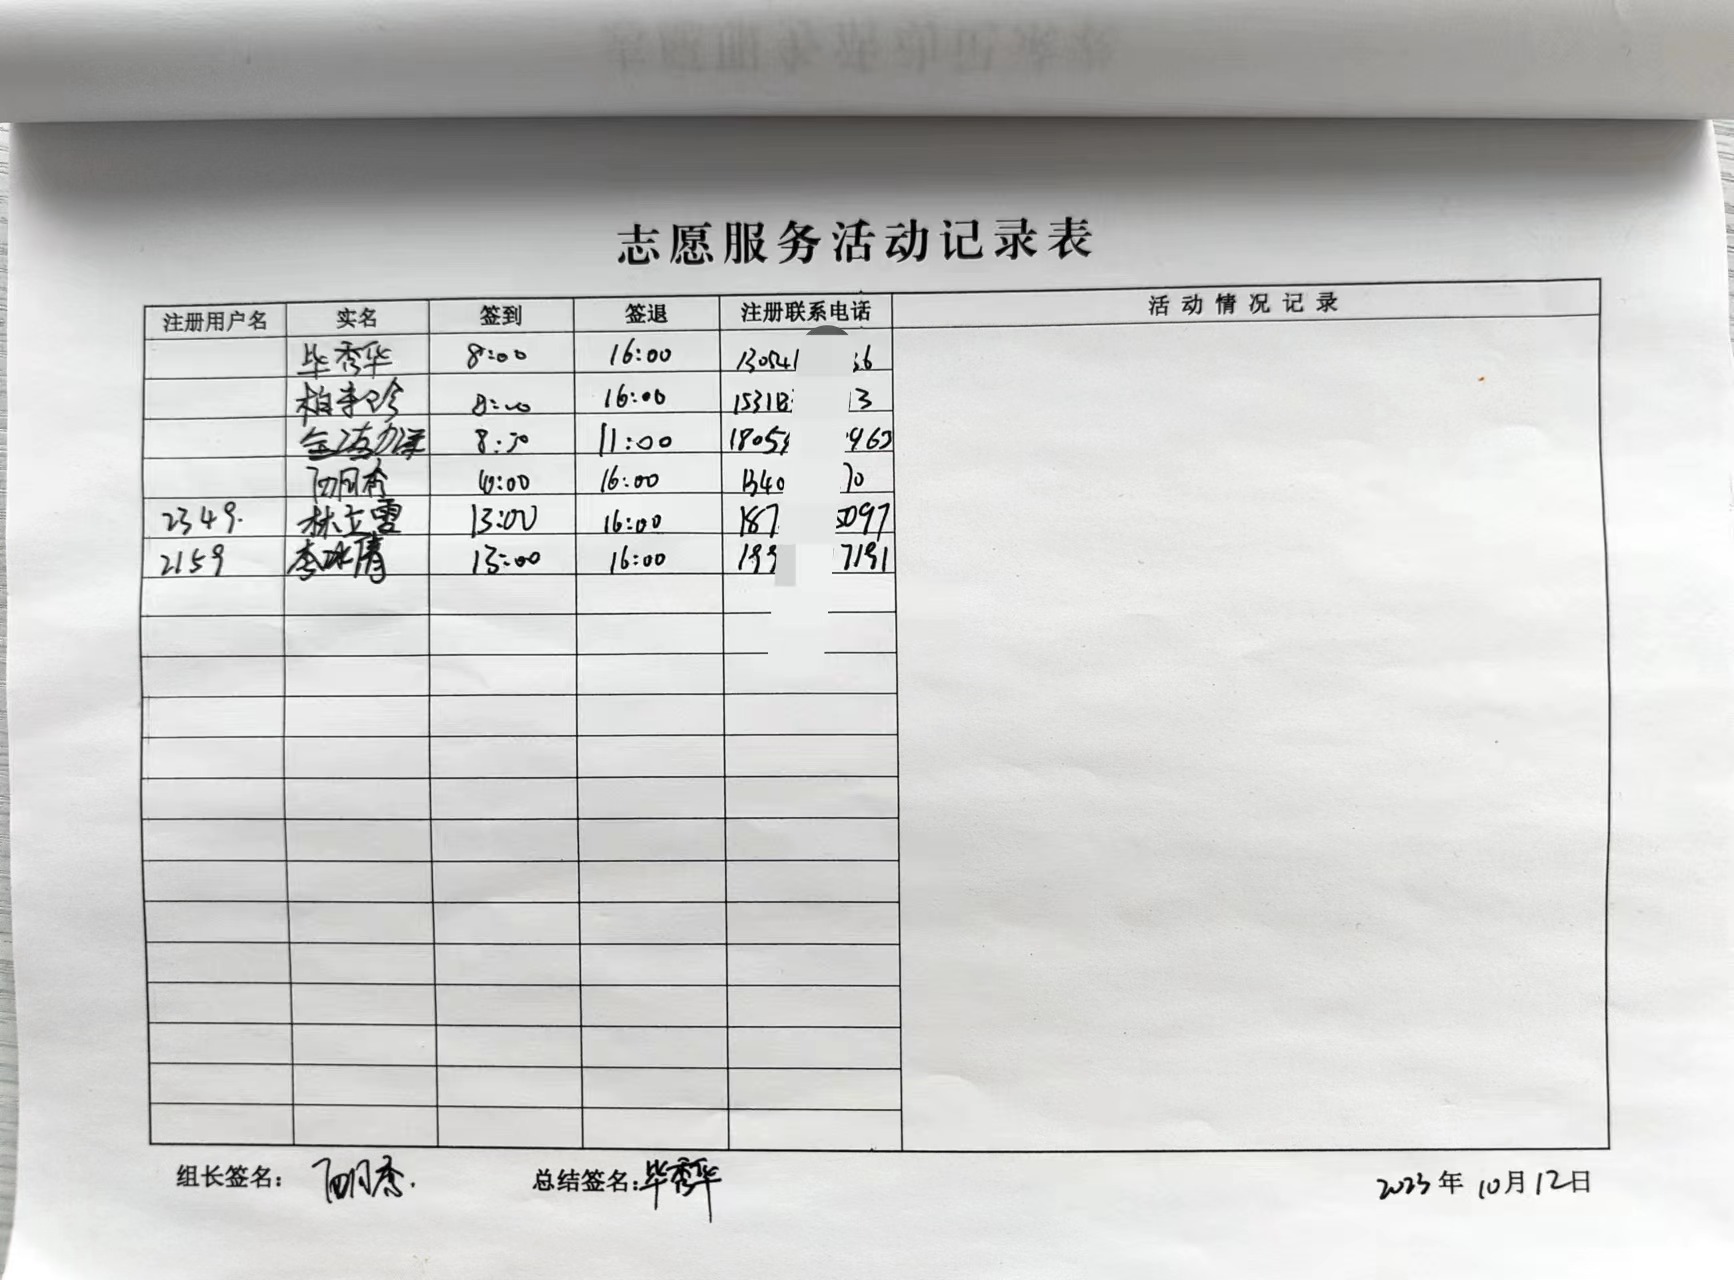 志愿服务活动记录表
注册用户名 实名 签到 签退 注册联系电话 活动情况记录
毕秀华 8:00 16:00 130541 36
8:00 16:00 1531 13
8:30 11:00 1805 962
16:00 1340 70
2349. 林立雪 13:00 16:00 187 5097
2159 李冰倩 13:00 16:00 199 7191
组长签名: 总结签名:毕秀华 2023年10月12日